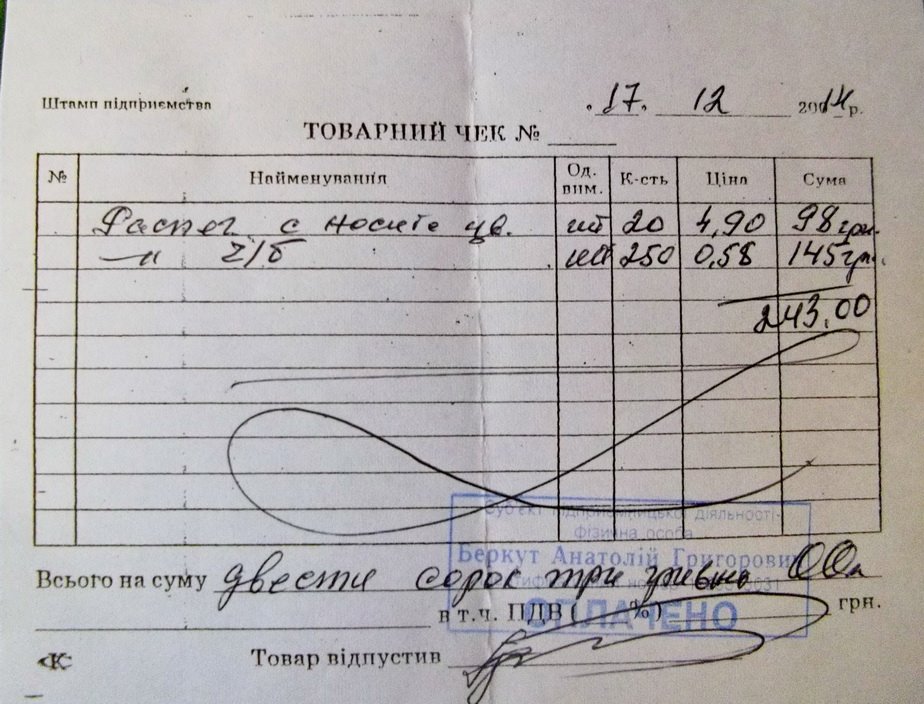 Штамп підприємства
17. 12 2014 р.
ТОВАРНИЙ ЧЕК №
№ Найменування Од. вим. К-сть Ціна Сума
Распеч. с носите цв. шт 20 4,90 98 грн.
—"— ч/б шт 250 0,58 145 грн.
243,00
Суб'єкт підприємницької діяльності-
фізична особа
Беркут Анатолій Григорович
Всього на суму двести сорок три гривны 00к
ОПЛАЧЕНО
в т.ч. ПДВ ( %) грн.
К Товар відпустив